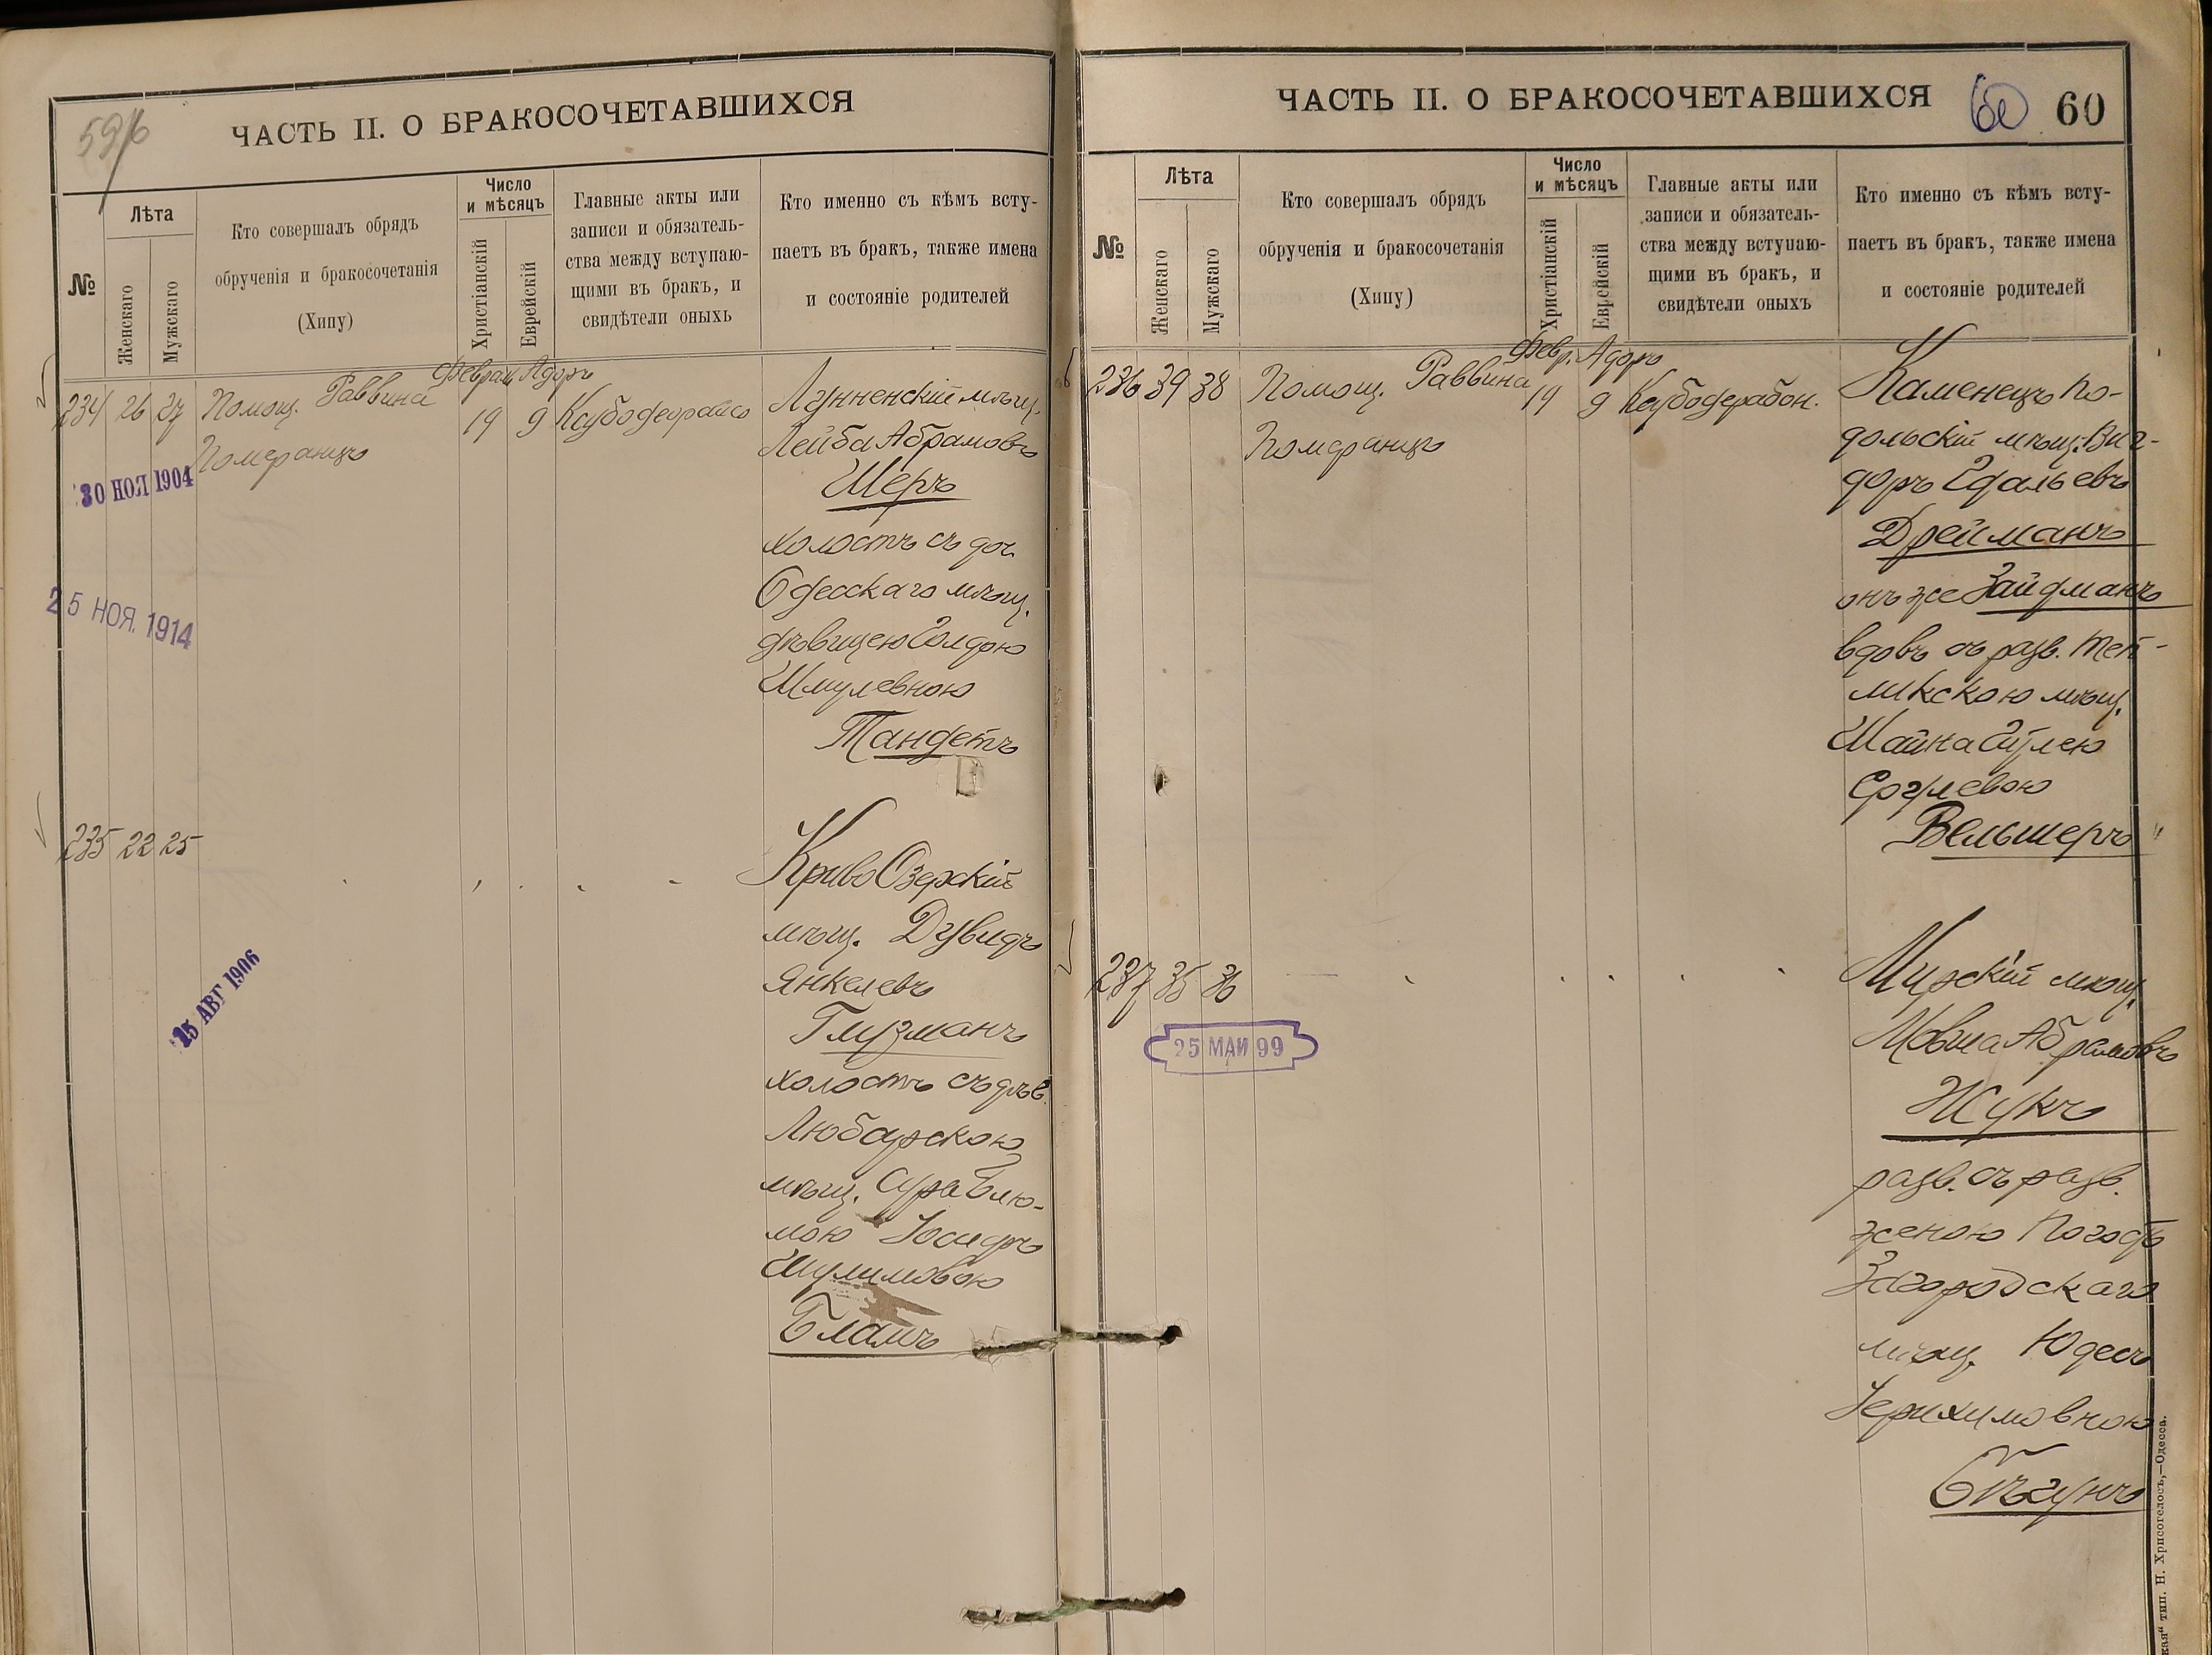 59/б
ЧАСТЬ II. О БРАКОСОЧЕТАВШИХСЯ
№
Лѣта
Женскаго
Мужскаго
Кто совершалъ обрядъ
обрученія и бракосочетанія
(Хипу)
Число
и мѣсяцъ
Христіанскій
Еврейскій
Главные акты или
записи и обязатель-
ства между вступаю-
щими въ бракъ, и
свидѣтели оныхъ
Кто именно съ кѣмъ всту-
паетъ въ бракъ, также имена
и состояніе родителей
234 26 27 Помощ. Раввина
Померанцъ
Феврал. Адоръ
19 9
30 НОЯ 1904
25 НОЯ. 1914
Лунненскій мѣщ.
Лейба Абрамовъ
Шеръ
холостъ съ доч.
Одесскаго мѣщ.
дѣвицею Голдою
Шмулевною
Тандетъ
235 22 25
15 АВГ 1906
Криво Озерскій
мѣщ. Дувидъ
Янкелевъ
Глузманъ
холостъ съ дѣв.
Любарскою
мѣщ. Сура Блю-
мою Іосифъ
Шулимовою
Бламъ
ЧАСТЬ II. О БРАКОСОЧЕТАВШИХСЯ
60 60
№
Лѣта
Женскаго
Мужскаго
Кто совершалъ обрядъ
обрученія и бракосочетанія
(Хипу)
Число
и мѣсяцъ
Христіанскій
Еврейскій
Главные акты или
записи и обязатель-
ства между вступаю-
щими въ бракъ, и
свидѣтели оныхъ
Кто именно съ кѣмъ всту-
паетъ въ бракъ, также имена
и состояніе родителей
236 39 38 Помощ. Раввина
Померанцъ
Февр. Адоръ
19 9
Каменецъ По-
дольскій мѣщ. Виг-
доръ Гдальевъ
Дрейманъ
онъ же Зайдманъ
вдовъ съ разв. Теп-
ликскою мѣщ.
Шайна Гитлею
Срулевою
Вельшеръ
237 35 36
25 МАЙ 99
Мирскій мѣщ.
Мовша Абрамовъ
Жукъ
разв. съ разв.
женою Погостъ
Загородскаго
мѣщ. Юдесъ
Іерихимовною
Бѣгунъ
тип. Н. Хрисогелосъ,—Одесса.